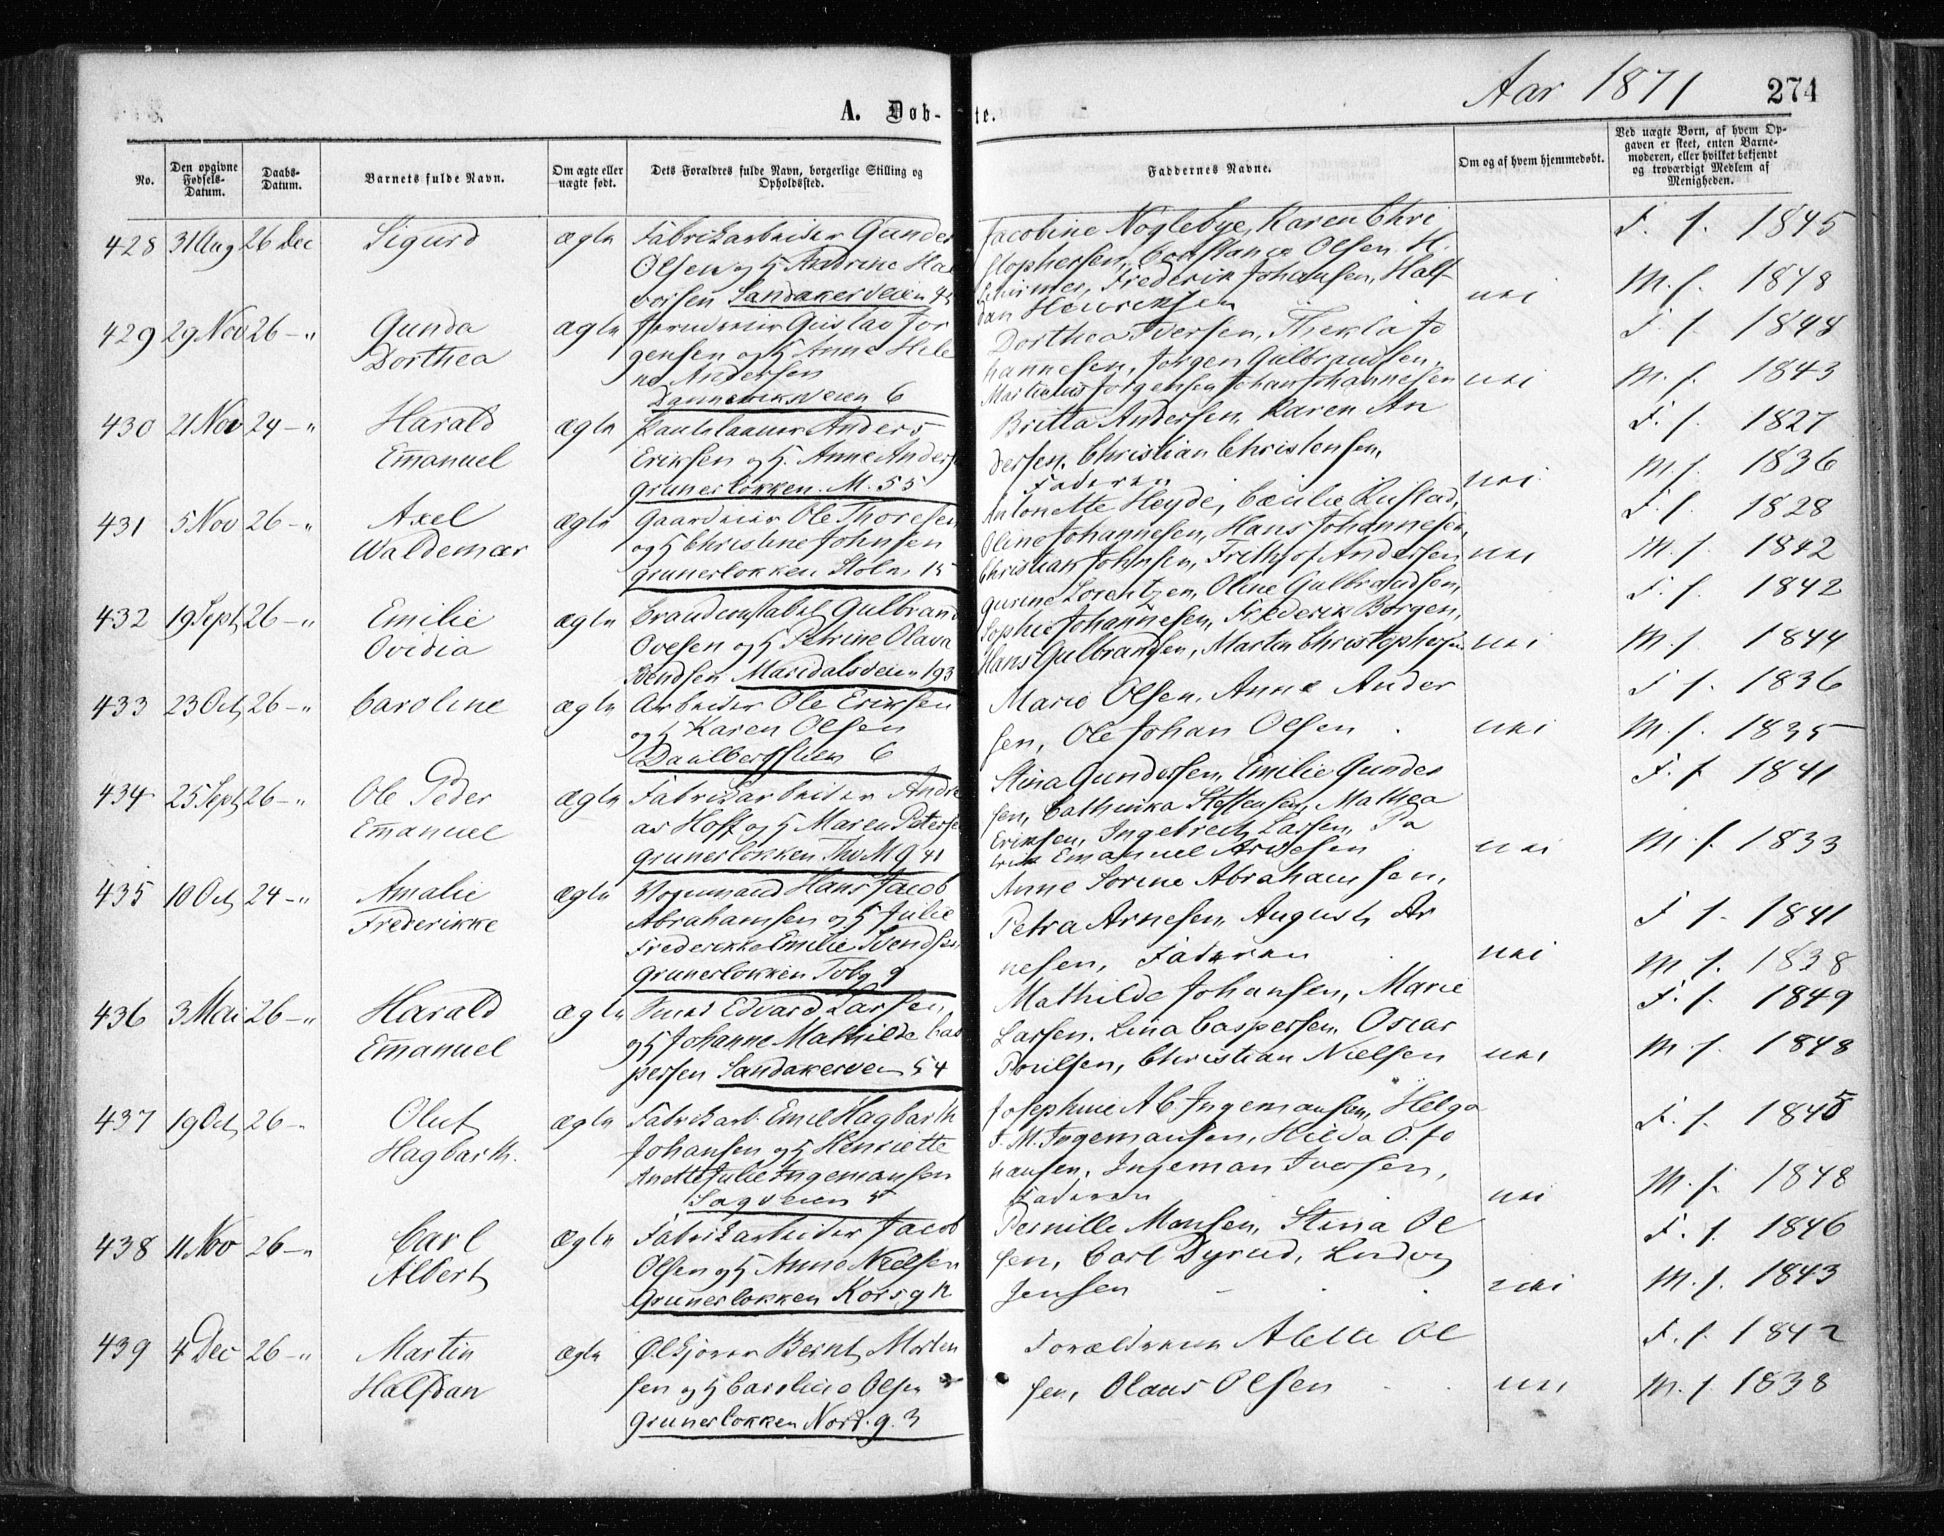 Aar 1871
274
A. Døb-
te.
No.
Den opgivne Fødsels-Datum.
Daabs-Datum.
Barnets fulde Navn.
Om ægte eller uægte født.
Dets Forældres fulde Navn, borgerlige Stilling og Opholdssted.
Faddernes Navne.
Om og af hvem hjemmedøbt.
Ved uægte Børn, af hvem Opgaven er skeet, enten Barnemoderen, eller hvilket bekjendt og troværdigt Medlem af Menigheden.
428 31 Aug 26 Dec Sigurd ægte Fabrikarbeider Gunder
Olsen og H Andrine Hal
vorsen Sandakerveien 45
Jacobine Nøglebye, Karen Chri
stophersen, Constance Olsen, H.
Schirmer, Frederik Johansen, Half
dan Henriksen
nei
F. f. 1845
M. f. 1848
429 29 Nov 26 - " Gunda
Dorthea
ægte Gustav Jør
gensen og H Anne Hele
ne Andersen
Danneviksveien 6
Dorthea Iversen, Thekla Jo
hannesen, Jørgen Gulbrandsen,
Martinius Jørgensen Johan Johannesen
nei
F. f. 1848
M. f. 1843
430 21 Nov 24 - " Harald
Emanuel
ægte Anders
Eriksen og H. Anne Anders
Grunerløkken. M. 55
Britta Andersen, Karen An
dersen, Christian Christensen,
Faderen
nei
F. f. 1827
M. f. 1836
431 5 Nov 26 - " Axel
Waldemar
ægte Gaardeier Ole Thoresen
og H Christine Johnsen
Grunerløkken Stoln. 15
Antonette Heyde, Cæcilie Rustad,
Oline Johannesen, Hans Johannesen,
Christian Johnsen, Frithjof Andersen
nei
F. f. 1828
M. f. 1842
432 19 Sept 26 - " Emilie
Ovidia
ægte Brandconstabel Gulbrand
Ovesen og H Petrine Olava
Bendsen Maridalsveien 193
Gurine Lorentzen, Oline Gulbrandsen,
Sophie Johannesen, Frederik Borgen,
Hans Gulbrandsen, Martin Christophersen
nei
F. f. 1842
M. f. 1844
433 23 Oct 26 - " Caroline ægte Arbeider Ole Eriksen
og H Karen Olsen
Dahlbergstien 6
Marie Olsen, Anne Ander
sen, Ole Johan Olsen
nei
F. f. 1836
M. f. 1835
434 25 Sept 26 - " Ole Peder
Emanuel
ægte Fabrikarbeider Andre
as Hoff og H Maren Peters
Grunerløkken Thv M g 41
Stina Gundersen, Emilie Gunder
sen, Cathinka Steffensen, Mathea
Eriksen, Ingebret Larsen, Pa
trik Emanuel Arnesen
nei
F. f. 1841
M. f. 1833
435 10 Oct 24 - " Amalie
Frederikke
ægte Vognmand Hans Jacob
Abrahamsen og H Julie
Frederikke Emilie Svendsen
Grunerløkken Tobg 9
Anne Sorine Abrahamsen,
Petra Arnesen, August Ar
nesen, Faderen
nei
F. f. 1841
M. f. 1838
436 3 Mai 26 - " Harald
Emanuel
ægte Smed Edvard Larsen
og H Johanne Mathilde Cas
persen Sandakervei 54
Mathilde Johansen, Marie
Larsen, Lina Caspersen, Oscar
Poulsen, Christian Nielsen
nei
F. f. 1849
M. f. 1848
437 19 Oct 26 - Oluf
Hagbarth.
ægte Fabrikarb. Emil Hagbarth
Johansen og H Henriette
Anette Julie Ingemansen
Sagveien 5
Josephine Ab Ingemansen, Helga
F. M. Ingemansen, Hilda O. Jo
hansen, Ingeman Iversen,
Faderen
nei
F. f. 1845
M. f. 1848
438 11 Nov 26 - " Carl
Albert
ægte Fabrikarbeider Jacob
Olsen og H Anne Nielsen
Grunerløkken Korsg
Pernille Monsen, Stina Ol
sen, Carl Dyrud, Ludvig
Jensen
nei
F. f. 1846
M. f. 1843
439 4 Dec 26 - " Martin
Halfdan
ægte Ølkjører Bernt Morten
sen og H Caroline Olsen
Grunerløkken Nord. g. 3
Forældrene Alette Ol
sen, Olaus Olsen
nei
F. f. 1842
M. f. 1838